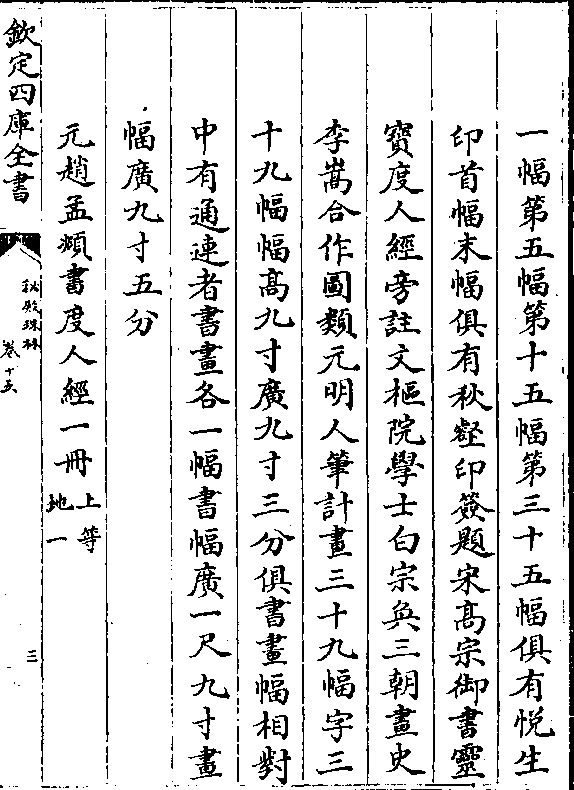 一幅第五幅第十五幅第三十五幅俱有悦生
印首幅末幅俱有秋壑印簽題宋髙宗御書靈
寳度人經旁註文樞院學士白宗奐三朝畫史
李嵩合作圖類元明人筆計畫三十九幅字三
十九幅幅髙九寸廣九寸三分俱書畫幅相對
中有通連者書畫各一幅書幅廣一尺九寸畫
幅廣九寸五分
元趙孟頫書度人經一冊上等地一
欽定四庫全書
秘殿珠林
卷十五
三